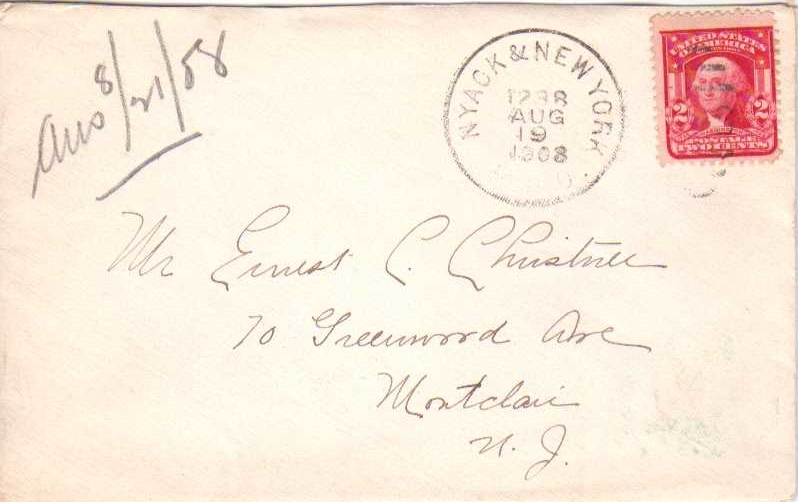 Ans 8/21/08
NYACK & NEW YORK
AUG
19
1908
UNITED STATES
OF AMERICA
2 2
POSTAGE
TWO CENTS
Mr Ernest C.
70 Greenwood Ave
Montclair
N. J.